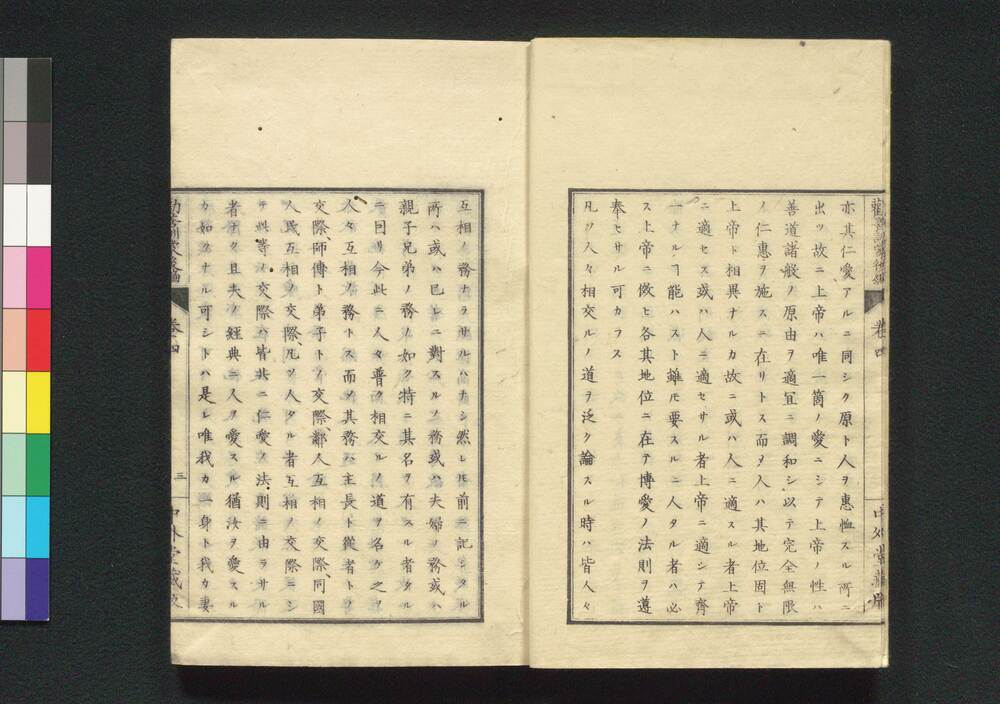 勸善訓蒙後編 卷四 中外堂藏版
亦其仁愛アルニ同シク原ト人ヲ惠恤スル所ニ
出ツ故ニ上帝ハ唯一箇ノ愛ニシテ上帝ノ性ハ
善道諸般ノ原由ヲ適宜ニ調和シ以テ完全無限
ノ仁惠ヲ施スニ在リトス而ヲ人ハ其地位固ト
上帝ト相異ナルカ故ニ或ハ人ニ適スル者上帝
ニ適セス或ハ人ニ適セサル者上帝ニ適シテ齊
一ナルヿ能ハスト雖モ要スルニ人タル者ハ必
ス上帝ニ傚ヒ各其地位ニ在テ博愛ノ法則ヲ遵
奉セサル可カラス
凡ソ人々相交ルノ道ヲ泛ク論スル時ハ皆人々
互相ノ務ナラサルハナシ然レモ前ニ記シタル
所ハ或ハ己レニ對スルノ務或ハ夫婦ノ務或ハ
親子兄弟ノ務ノ如ク特ニ其名ヲ有スル者タル
ニ因リ今此ニ人々普ク相交ルノ道ヲ名ケ之ヲ
人々互相ノ務トス而ソ其務ハ主長ト從者トノ
交際師傳ト弟子トノ交際鄰人互相ノ交際同國
人民互相ノ交際凡ソ人タル者互相ノ交際ニシ
テ此等ノ交際ハ皆共ニ仁愛ノ法則ニ由ラサル
者ナク且夫ノ經典ニ人ヲ愛スル猶汝ヲ愛スル
カ如クナル可シトハ是レ唯我カ一身ト我カ妻
卷四 三